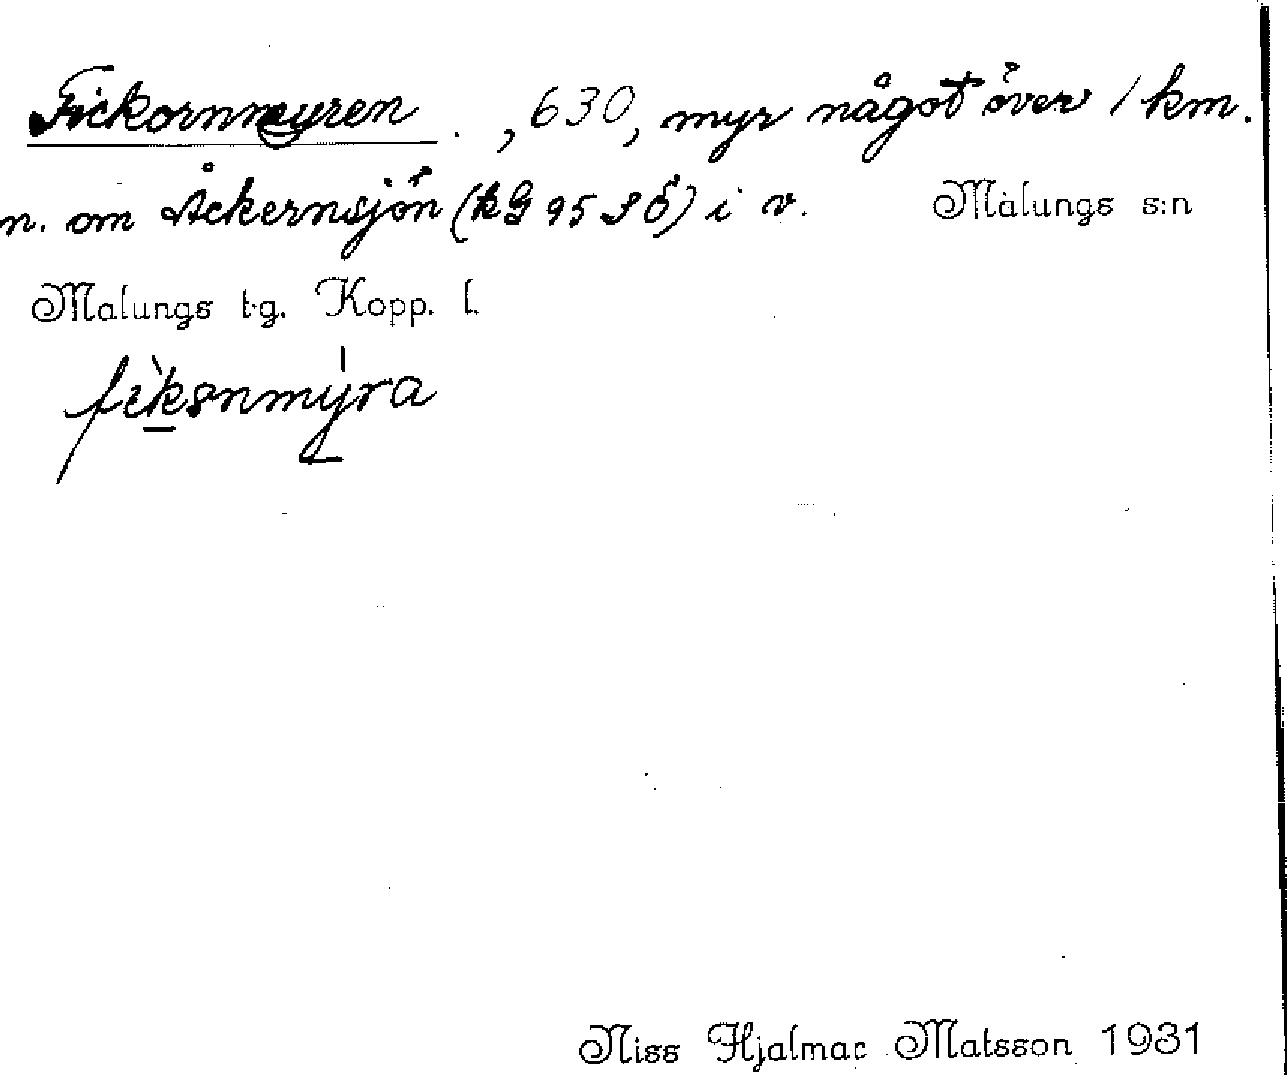 Fickornmyren . , 630, myr något över 1 km.
n. om Åckernsjön (kG 95 SÖ) i v. Malungs s:n
Malungs tg. Kopp. l.
fìkɷnmýra
Niss Hjalmar Matsson 1931